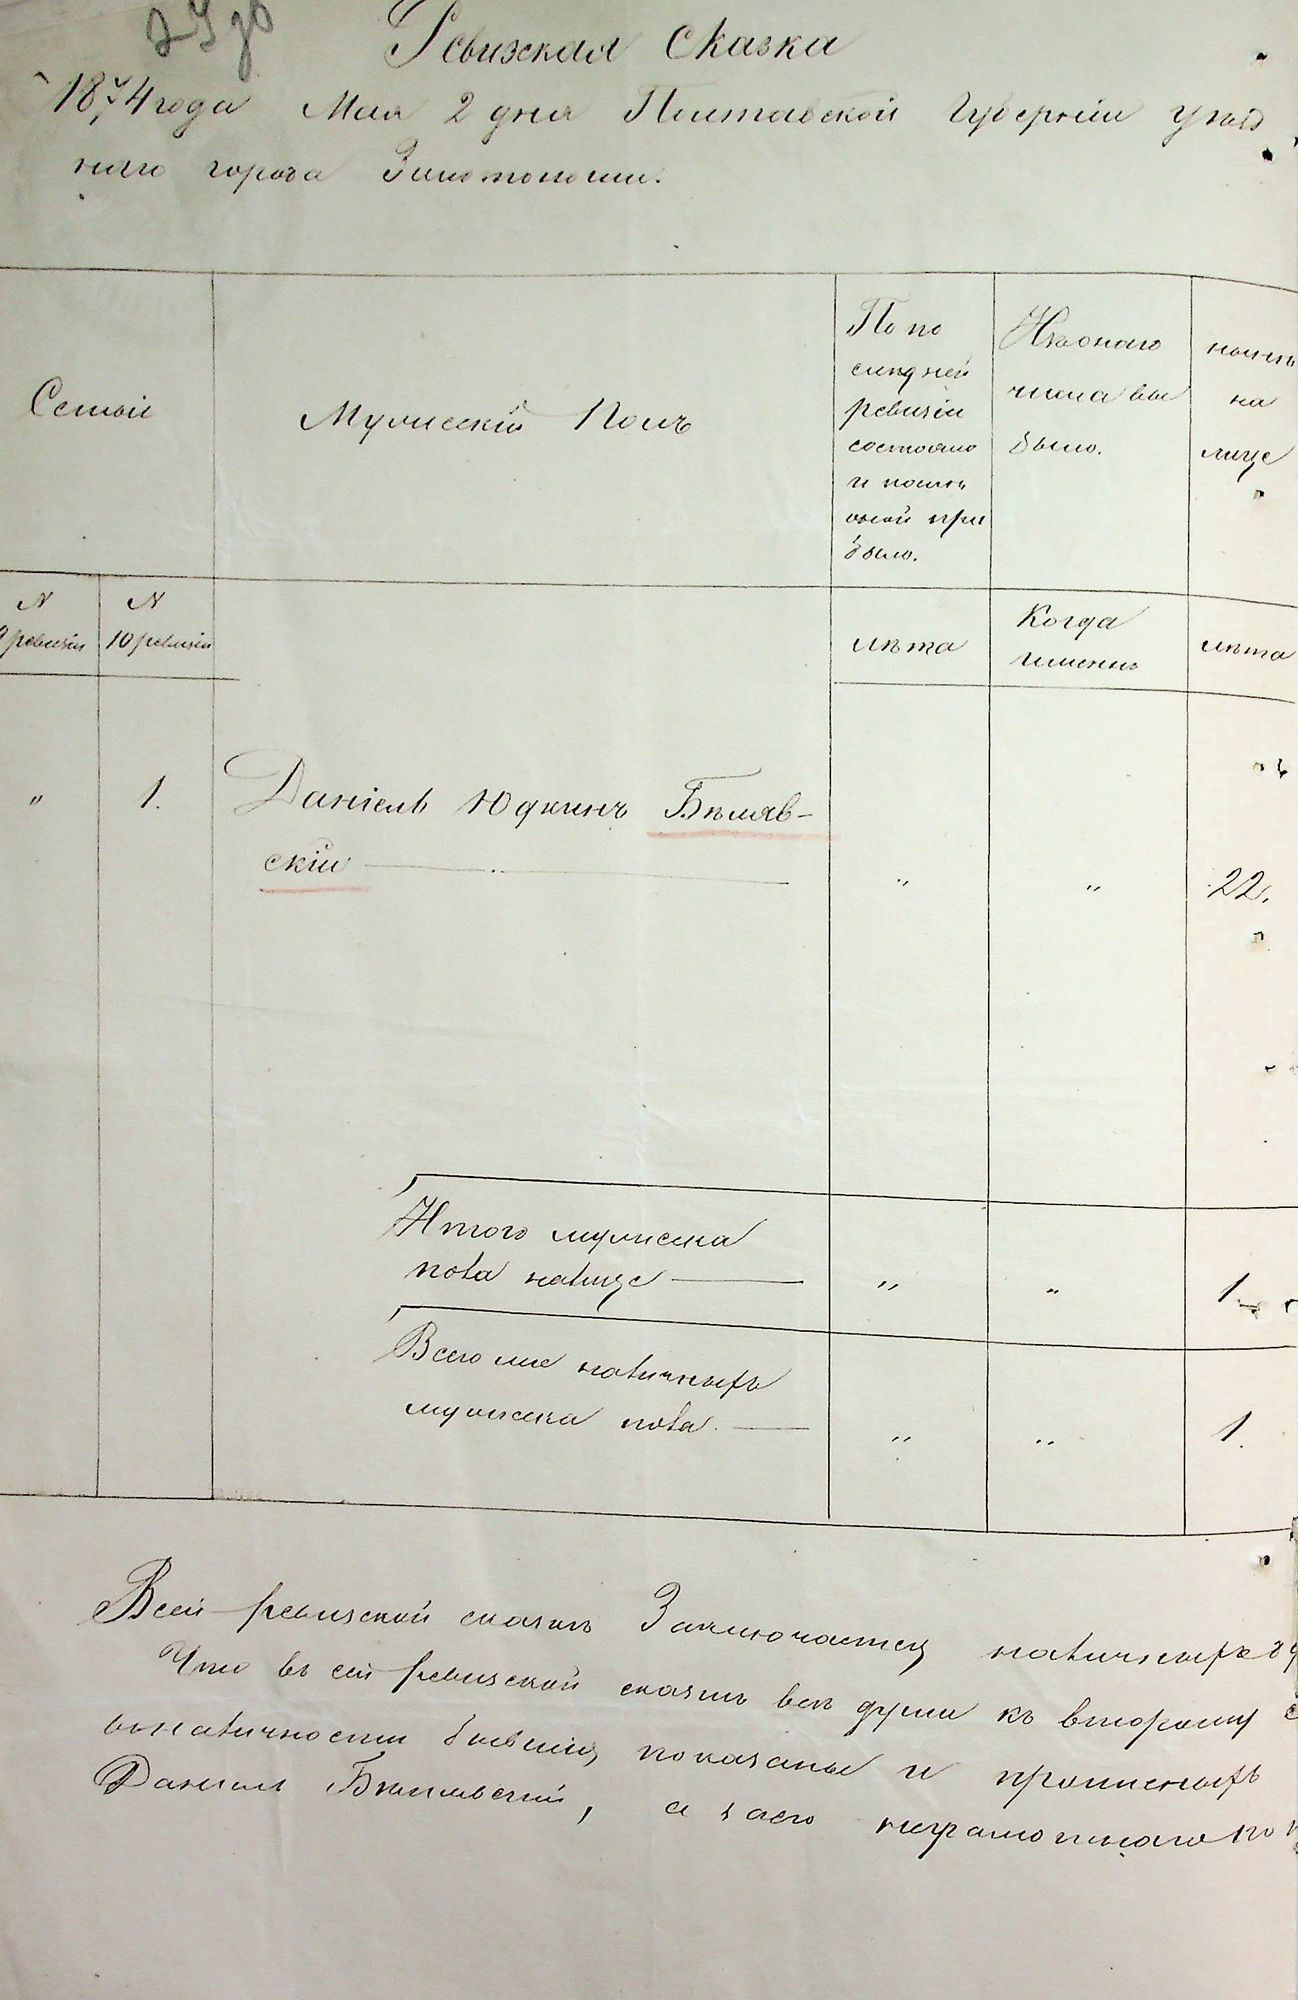 Ревизская Сказка
1874 года Мая 2 дня Полтавской Губерніи уѣзд
наго города Золотоноши.
Семьи
Мужескій Полъ
По по
слѣдней
ревизіи
состояло
и послѣ
оной при
было.
Изъ онаго
числа вы
было.
нынѣ
на
лице
N
9 ревизіи
N
10 ревизіи
лѣта
Когда
именно
лѣта
" 1. Даніель Юдкинъ Бѣляв-
скій " " 22.
Итого мужеска
пола налице " " 1.
Всего же наличныхъ
мужеска пола " " 1.
Всей ревизской сказкѣ Заключается наличныхъ
Что въ сей ревизской сказкѣ всѣ души къ второму
въ наличности бывшія, показаны и прописныхъ
Даніель Бѣлявскій, а за его неграмотнаго по